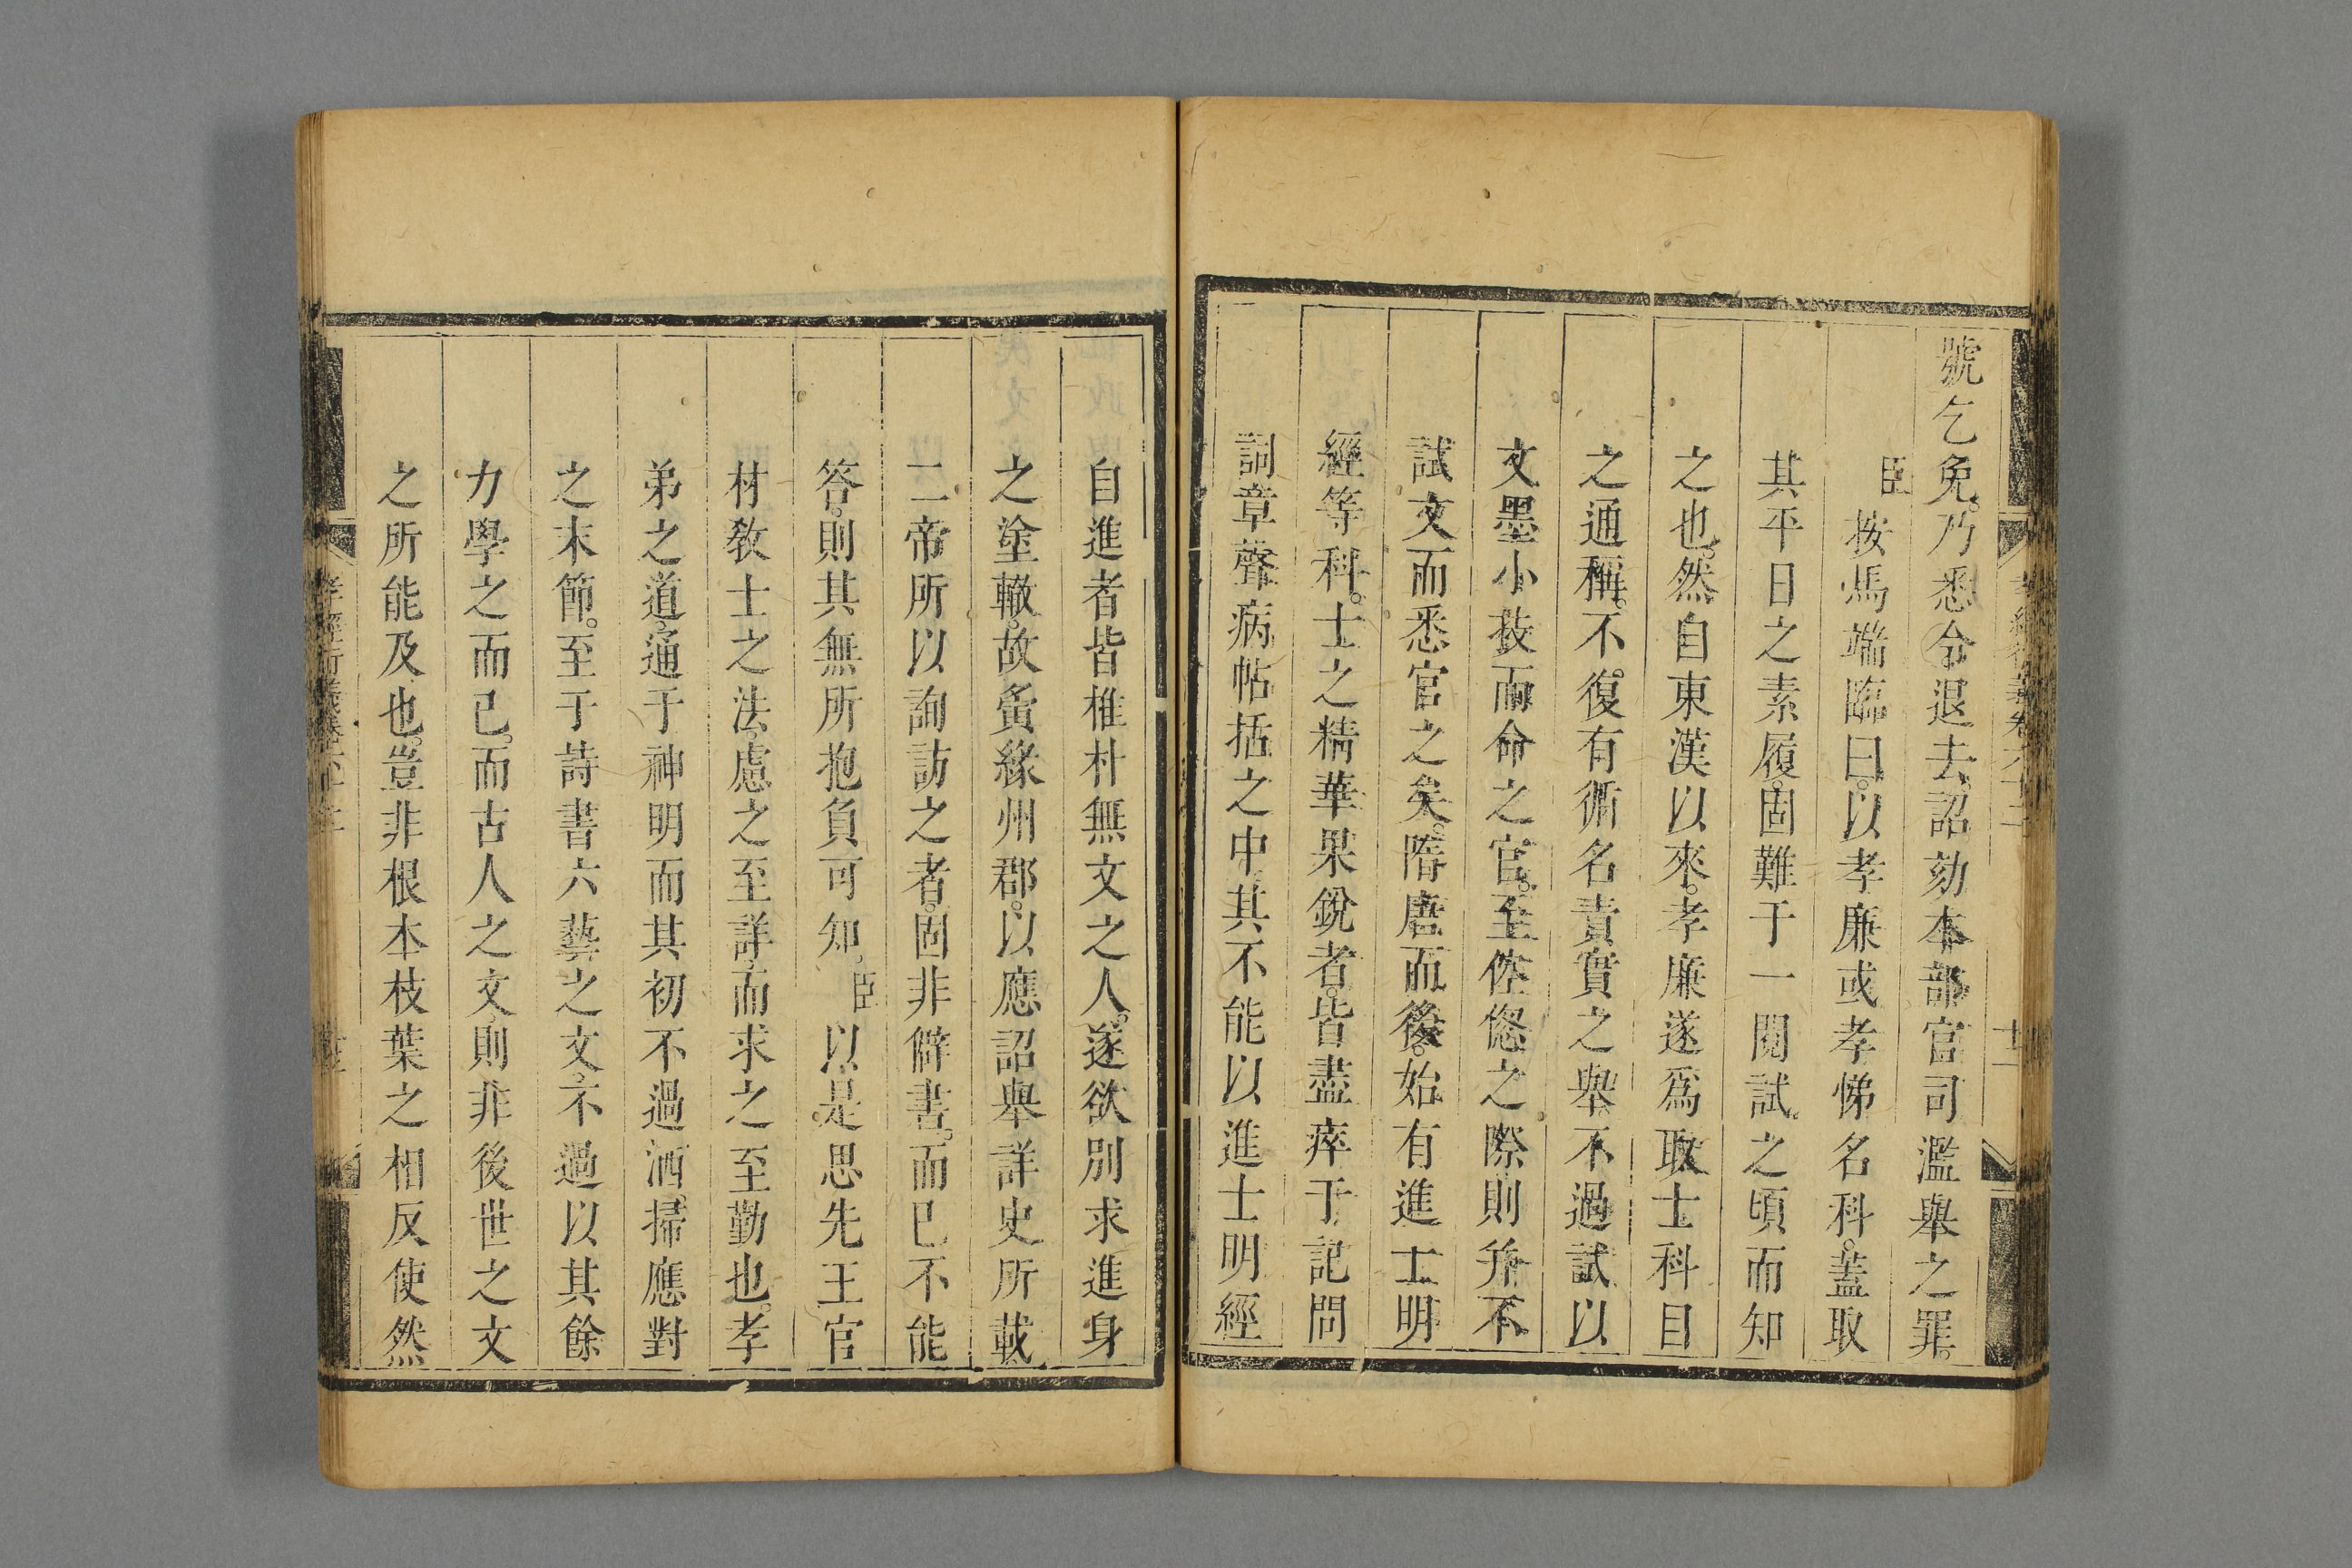 號乞免。乃悉令退去。詔劾本部官司濫舉之罪。
臣按馬端臨曰。以孝廉或孝悌名科。蓋取
其平日之素履。固難于一閱試。之頃而知
之也。然自東漢以來。孝廉遂爲取士科目
之通稱。不復有循名責實之舉。不過試以
文墨小技而命之官。至倥傯之際則并不
試文而悉官之矣。隋唐而後。始有進士明
經等科。士之精華果銳者。皆盡瘁于記問
詞章聲病帖括之中。其不能以進士明經
自進者皆椎朴無文之人。遂欲別求進身
之塗轍。故夤緣州郡。以應詔舉詳史所載
二帝所以詢訪之者。固非僻書。而已不能
答。則其無所抱負可知。臣以是思先王官
材教士之法。慮之至詳。而求之至勤也。孝
弟之道。通于神明而其初不過洒掃應對
之末節。至于詩書六藝之文。不過以其餘
力學之而已。而古人之文。則非後世之文
之所能及也。豈非根本枝葉之相反使然